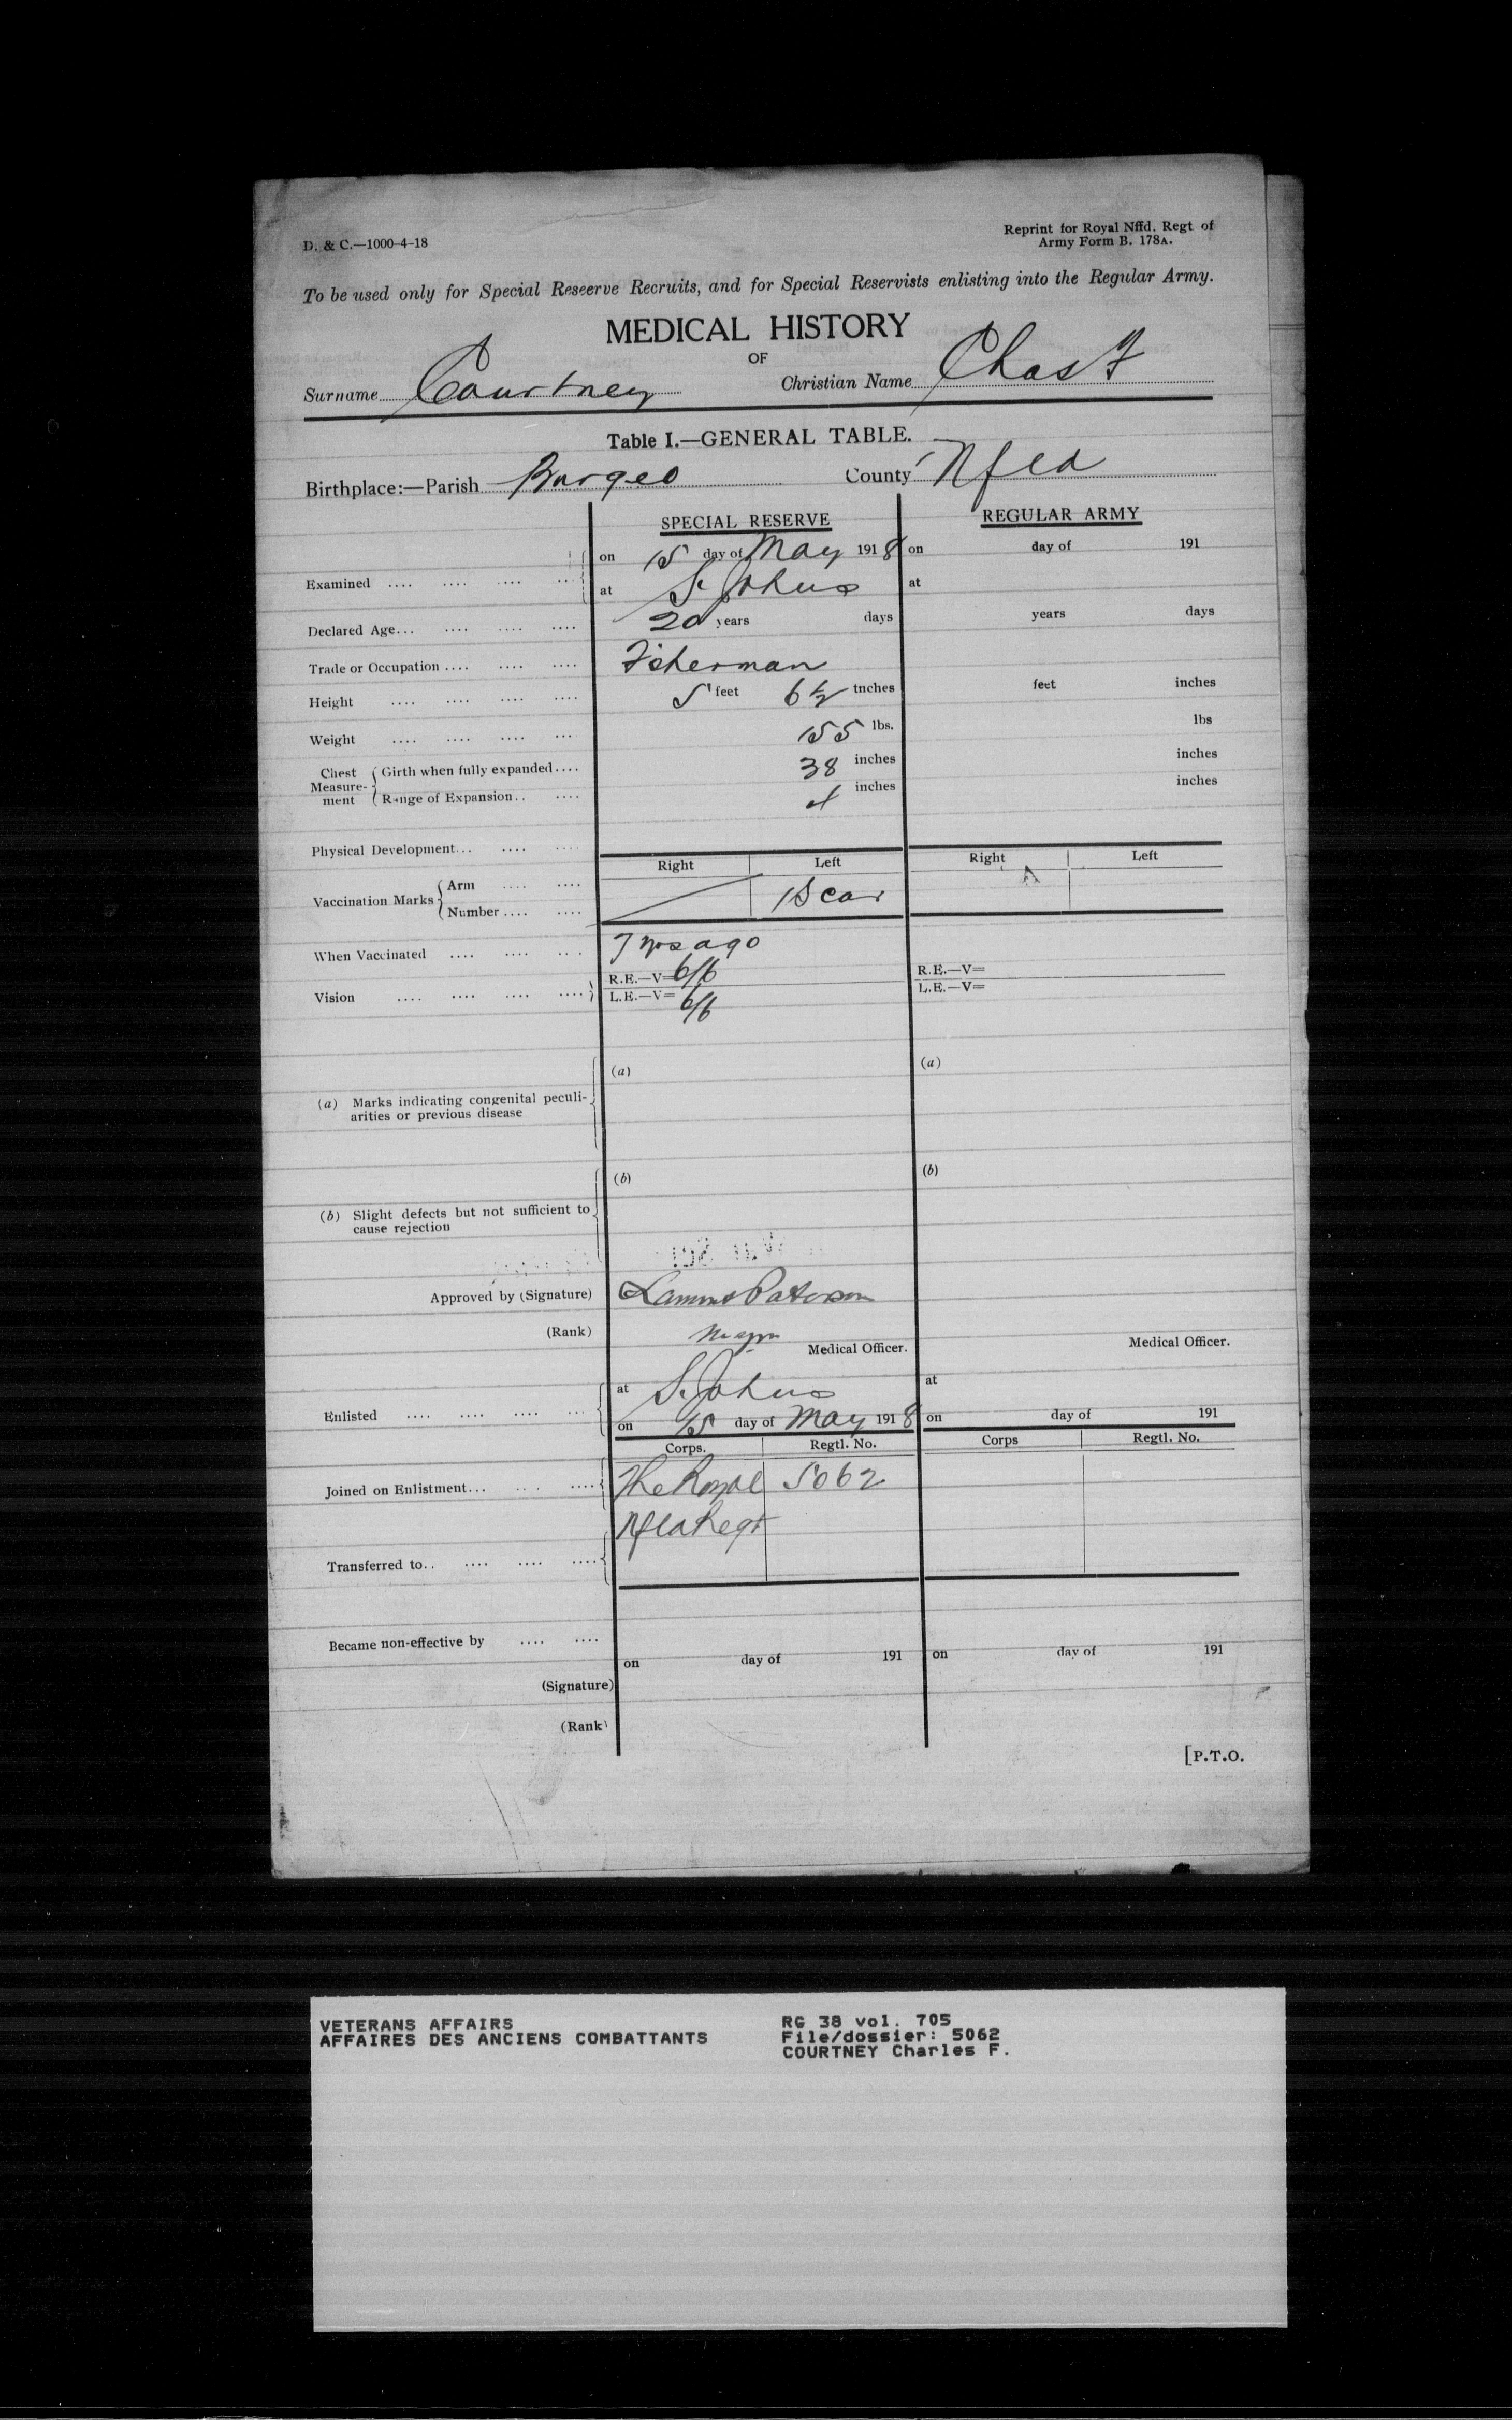 D. & C.—1000-4-18
Reprint for Royal Nffd. Regt of
Army Form B. 178A.
To be used only for Special Reseerve Recruits, and for Special Reservists enlisting into the Regular Army.
MEDICAL HISTORY
OF
Surname Courtney Christian Name Chas F
Table I.—GENERAL TABLE.
Birthplace:—Parish Burgeo County Nfld
SPECIAL RESERVE REGULAR ARMY
Examined .... .... .... .... on 15 day of May 1918 on day of 191
at St Johns at
Declared Age... .... .... .... 20 years days years days
Trade or Occupation .... .... .... Fisherman
Height .... .... .... .... 5 feet 6 1/2 tnches feet inches
Weight .... .... .... .... 155 lbs. lbs
Chest Measure-ment Girth when fully expanded .... 38 inches inches
Range of Expansion.. .... 4 inches inches
Physical Development... .... ....
Right Left Right Left
Vaccination Marks Arm .... ....
Number .... .... 1 Scar
When Vaccinated .... .... .... 7 yrs ago
Vision .... .... .... .... R.E.—V= 6/6 R.E.—V=
L.E.—V= 6/6 L.E.—V=
(a) Marks indicating congenital peculi-
arities or previous disease
(a) (a)
(b) Slight defects but not sufficient to
cause rejection
(b) (b)
Approved by (Signature) Lamont Paterson
(Rank) Major
Medical Officer. Medical Officer.
Enlisted .... .... .... .... at St Johns at
on 15 day of May 1918 on day of 191
Corps. Regtl. No. Corps Regtl. No.
Joined on Enlistment... .... .... The Royal 5062
Nfld Regt
Transferred to.. .... .... ....
Became non-effective by .... ....
on day of 191 on day of 191
(Signature)
(Rank)
[P.T.O.
VETERANS AFFAIRS RG 38 vol. 705
AFFAIRES DES ANCIENS COMBATTANTS File/dossier: 5062
COURTNEY Charles F.